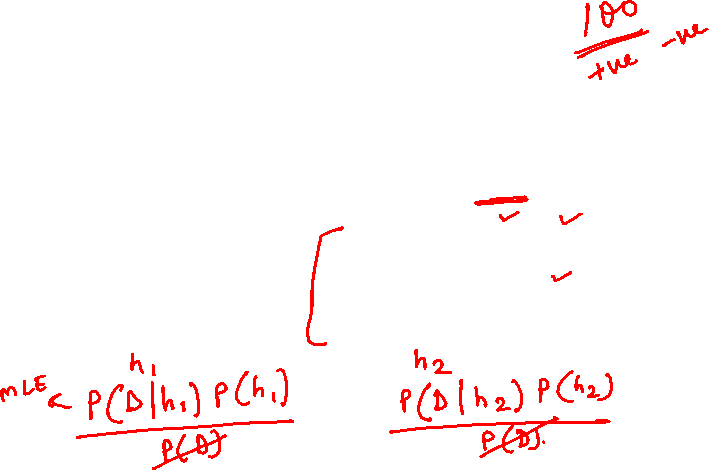 100
+ve -ve
h1 h2
MLE < P(D|h1) P(h1) P(D|h2) P(h2)
P(D) P(D).